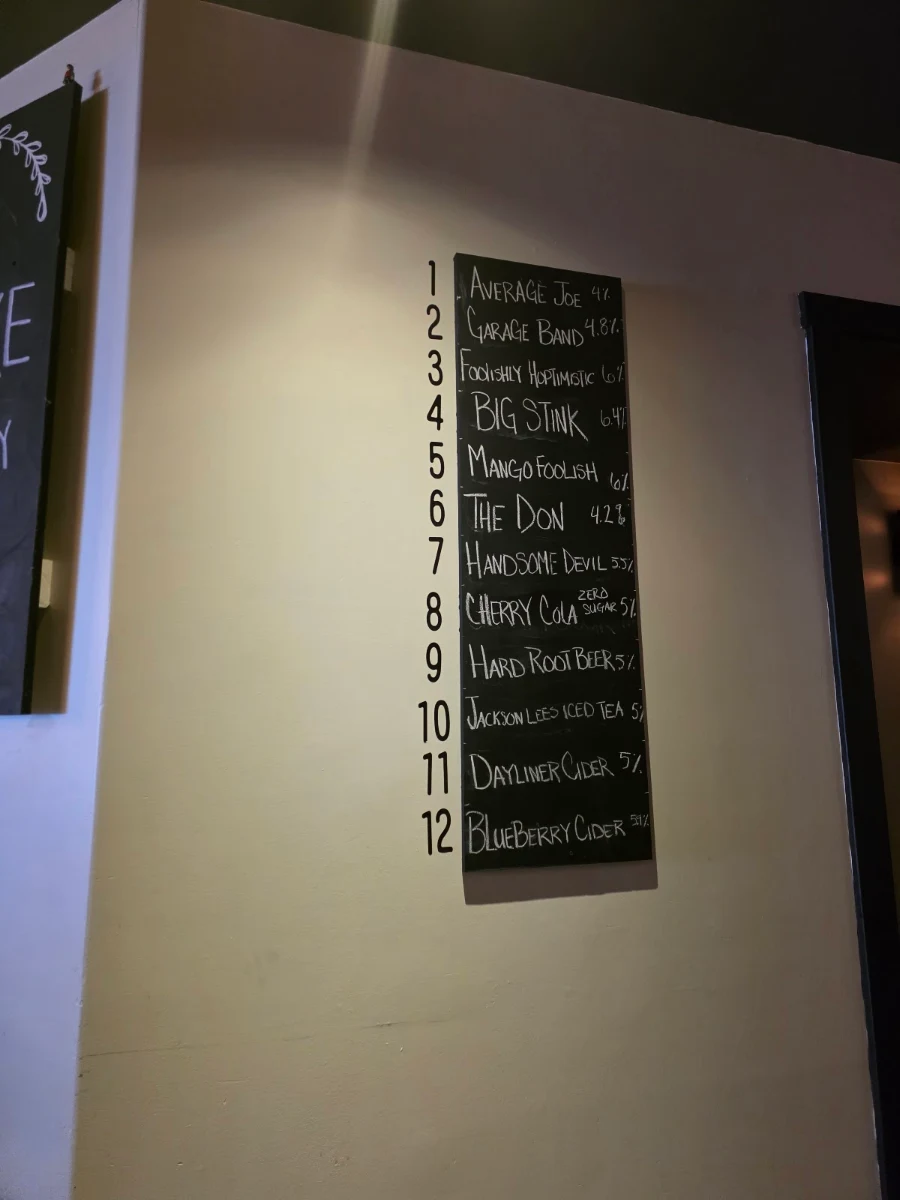 1 AVERAGE JOE 4%
2 GARAGE BAND 4.8%
3 FOOLISHLY HOPTIMISTIC 6%
4 BIG STINK 6.4%
5 MANGO FOOLISH 6%
6 THE DON 4.2%
7 HANDSOME DEVIL 5.5%
8 CHERRY COLA ZERO SUGAR 5%
9 HARD ROOT BEER 5%
10 JACKSON LEES ICED TEA 5%
11 DAYLINER CIDER 5%
12 BLUEBERRY CIDER